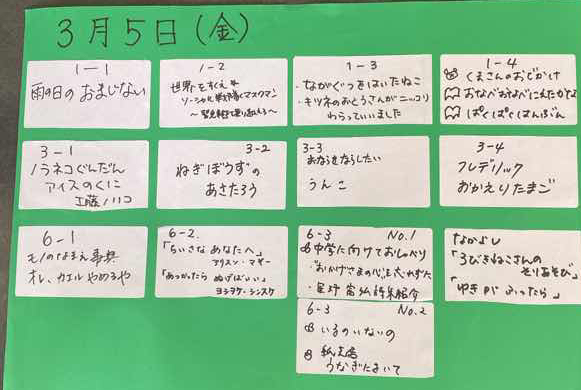 3月5日(金)
1-1
雨の日のおまじない
1-2
世界をすくえ★
ソーシャル戦隊マスクマン
1-3
・ながぐつをはいたねこ
・キツネのおとうさんがニッコリ
わらっていいました
1-4
くまさんのおでかけ
おなべおなべにえたかな
ぱくぱくはんぶん
3-1
ノラネコぐんだん
アイスのくに
工藤ノリコ
3-2
ねぎぼうずの
あさたろう
3-3
おならをならしたい
うんこ
3-4
フレデリック
おかえりたまご
6-1
モノのなまえ事典
オレ、カエルやめるや
6-2.
「ちいさなあなたへ」
アリスン・マギー
「あつかったら ぬげばいい」
ヨシタケ・シンスケ
6-3 No.1
中学に向けておしゃべり
・おかげさまの心を忘れず
・星野富弘詩集紹介
6-3 No.2
いるのいないの
うなぎにきいて
なかよし
「3びきねこさんの
そりあそび」
「ゆきがふったら」